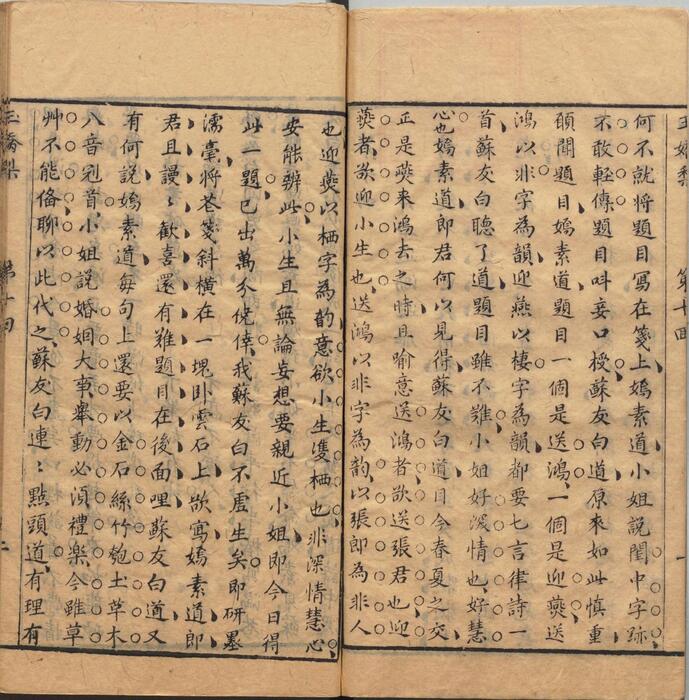 玉嬌梨 第十回 一
何不就將題目寫在箋上嫣素道小姐說閨中字跡
不敢輕傳題目呌妾口授蘇友白道原來如此慎重
願聞題目嫣素道題目一個是送鴻一個是迎燕送
鴻以非字為韻迎燕以棲字為韻都要七言律詩一
首蘇友白聽了道題目雖不難小姐好深情也好慧
心也嫣素道郎君何以見得蘇友白道目今春夏之交
正是燕来鴻去之時且喻意送鴻者欲送張君也迎
燕者欲迎小生也送鴻以非字為韵以張郎為非人
也迎燕以栖字為韵意欲小生雙栖也非深情慧心
安能辨此小生且無論妄想要親近小姐即今日得
此一題已出萬分僥倖我蘇友白不虛生矣即研墨
濡毫將花箋斜橫在一塊卧雲石上欲寫嫣素道郎
君且謾〻歡喜還有難題目在後面哩蘇友白道又
有何說嫣素道每句上還要以金石絲竹匏土草木
八音冠首小姐說婚姻大事舉動必須禮樂今雖草
艸不能俻聊以此代之蘇友白連〻點頭道有理有
玉嬌梨 第十回 二